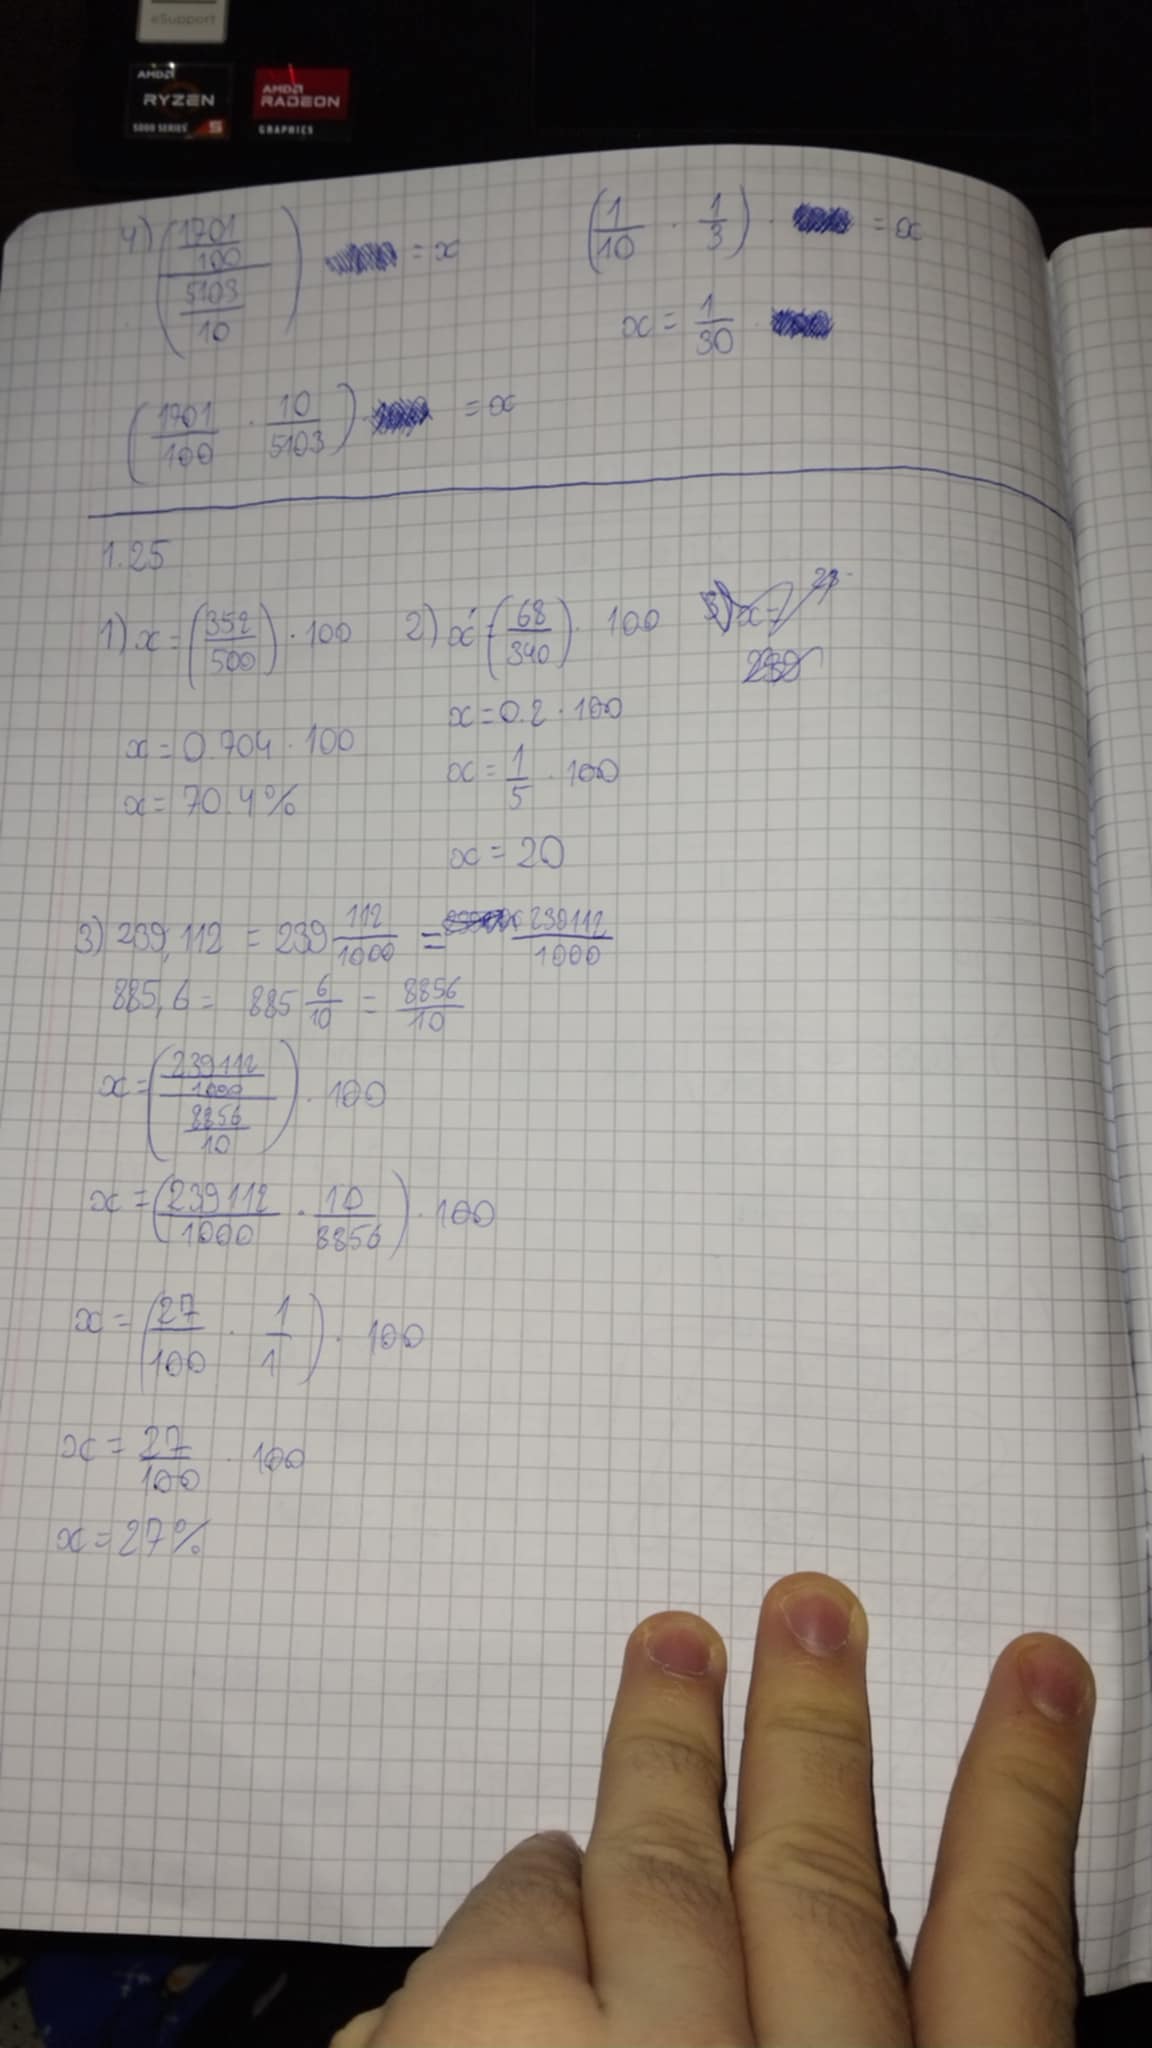 eSupport
AMD
RYZEN
5000 SERIES 5
AMD
RADEON
GRAPHICS
4) (1701/100 / 5103/10) = x
(1701/100 · 10/5103) · = x
(1/10 · 1/3) · = x
x = 1/30 ·
1.25
1) x = (352/500) · 100
x = 0.704 · 100
x = 70.4%
2) x = (68/340) · 100
x = 0.2 · 100
x = 1/5 · 100
x = 20
3) x =
3) 239,112 = 239 112/1000 = 239112/1000
885,6 = 885 6/10 = 8856/10
x = (239112/1000 / 8856/10) · 100
x = (239112/1000 · 10/8856) · 100
x = (27/100 · 1/1) · 100
x = 27/100 · 100
x = 27%